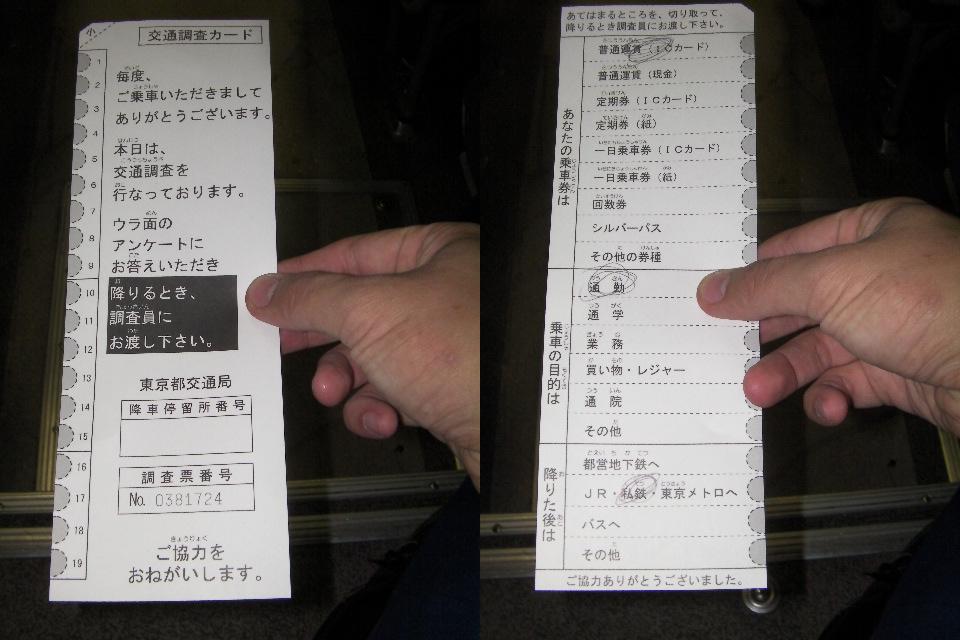 小
交通調査カード
毎度、
ご乗車いただきまして
ありがとうございます。
本日は、
交通調査を
行なっております。
ウラ面の
アンケートに
お答えいただき
降りるとき、
調査員に
お渡し下さい。
東京都交通局
降車停留所番号
調査票番号
No. 0381724
ご協力を
おねがいします。
1
2
3
4
5
6
7
8
9
10
11
12
13
14
15
16
17
18
19
あてはまるところを、切り取って、
降りるとき調査員にお渡し下さい。
あなたの乗車券は
普通運賃(ICカード)
普通運賃(現金)
定期券(ICカード)
定期券(紙)
一日乗車券(ICカード)
一日乗車券(紙)
回数券
シルバーパス
その他の券種
乗車の目的は
通勤
通学
業務
買い物・レジャー
通院
その他
降りた後は
都営地下鉄へ
JR・私鉄・東京メトロへ
バスへ
その他
ご協力ありがとうございました。